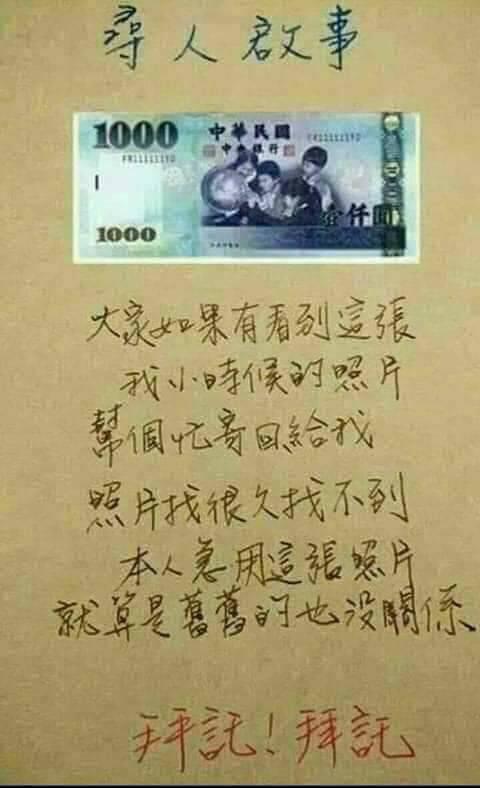 尋人啟事
1000 中華民國 FR111111YD
FR111111YD 中央銀行
1000 壹仟圓
大家如果有看到這張
我小時候的照片
幫個忙寄回給我
照片找很久找不到
本人急用這張照片
就算是舊舊的也沒關係
拜託！拜託